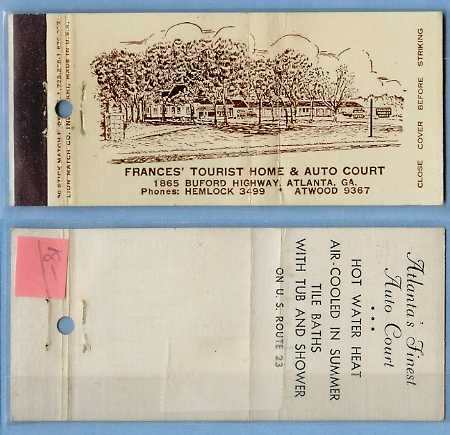 FRANCES' TOURIST HOME & AUTO COURT
1865 BUFORD HIGHWAY, ATLANTA, GA.
Phones: HEMLOCK 3499 • ATWOOD 9367
CLOSE COVER BEFORE STRIKING
Atlanta's Finest
Auto Court
• • •
HOT WATER HEAT
AIR-COOLED IN SUMMER
TILE BATHS
WITH TUB AND SHOWER
ON U. S. ROUTE 23